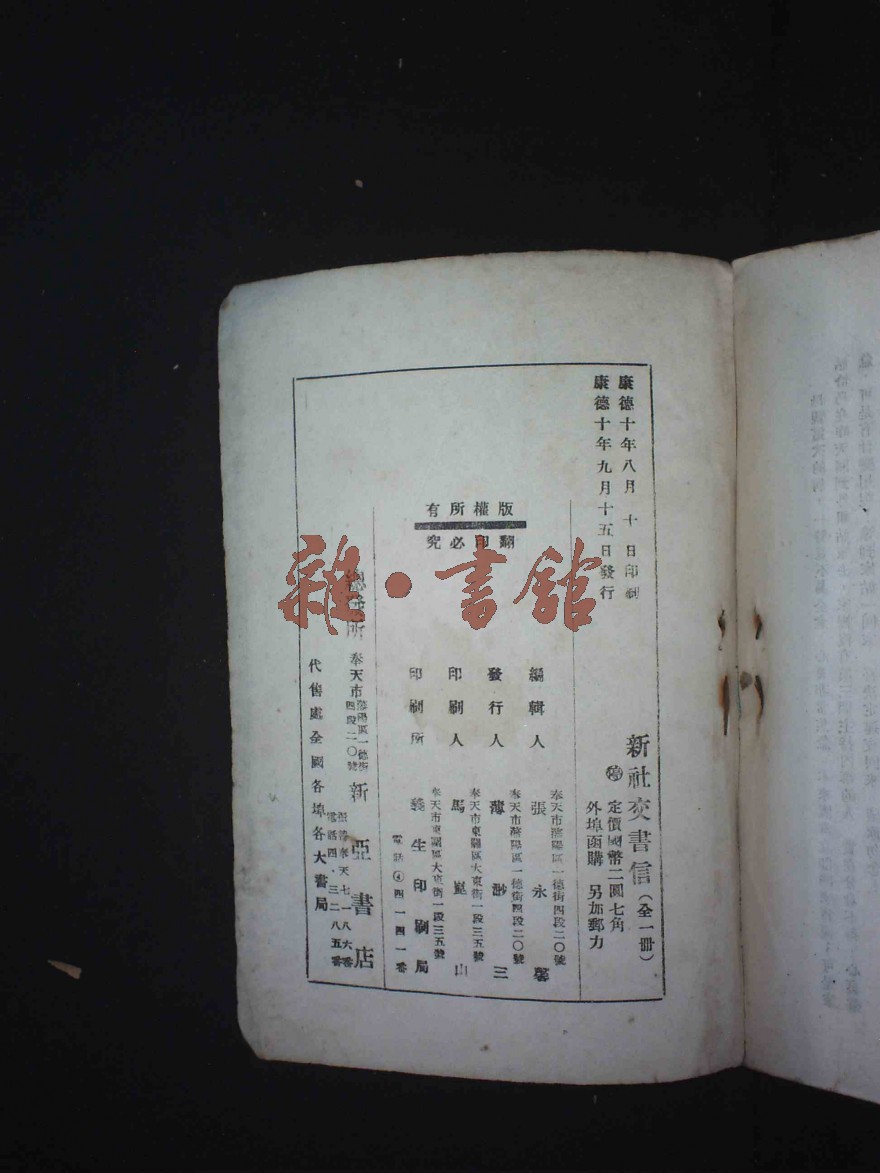 康德十年八月十日印刷
康德十年九月十五日發行
新社交書信（全一冊）
定價國幣二圓七角
外埠函購 另加郵力
版權所有
翻印必究
編輯人
奉天市瀋陽區一德街四段二〇號
張永馨
發行人
奉天市瀋陽區一德街四段二〇號
薄渺三
印刷人
奉天市東關區大東街一段三五號
馬崑山
印刷所
奉天市東關區大東街一段三五號
義生印刷局
電話④四一四一番
總發所
奉天市瀋陽區一德街四段二〇號
新亞書店
奉天七一八六番
電話四·三二八五番
代售處全國各埠各大書局
雜·書館